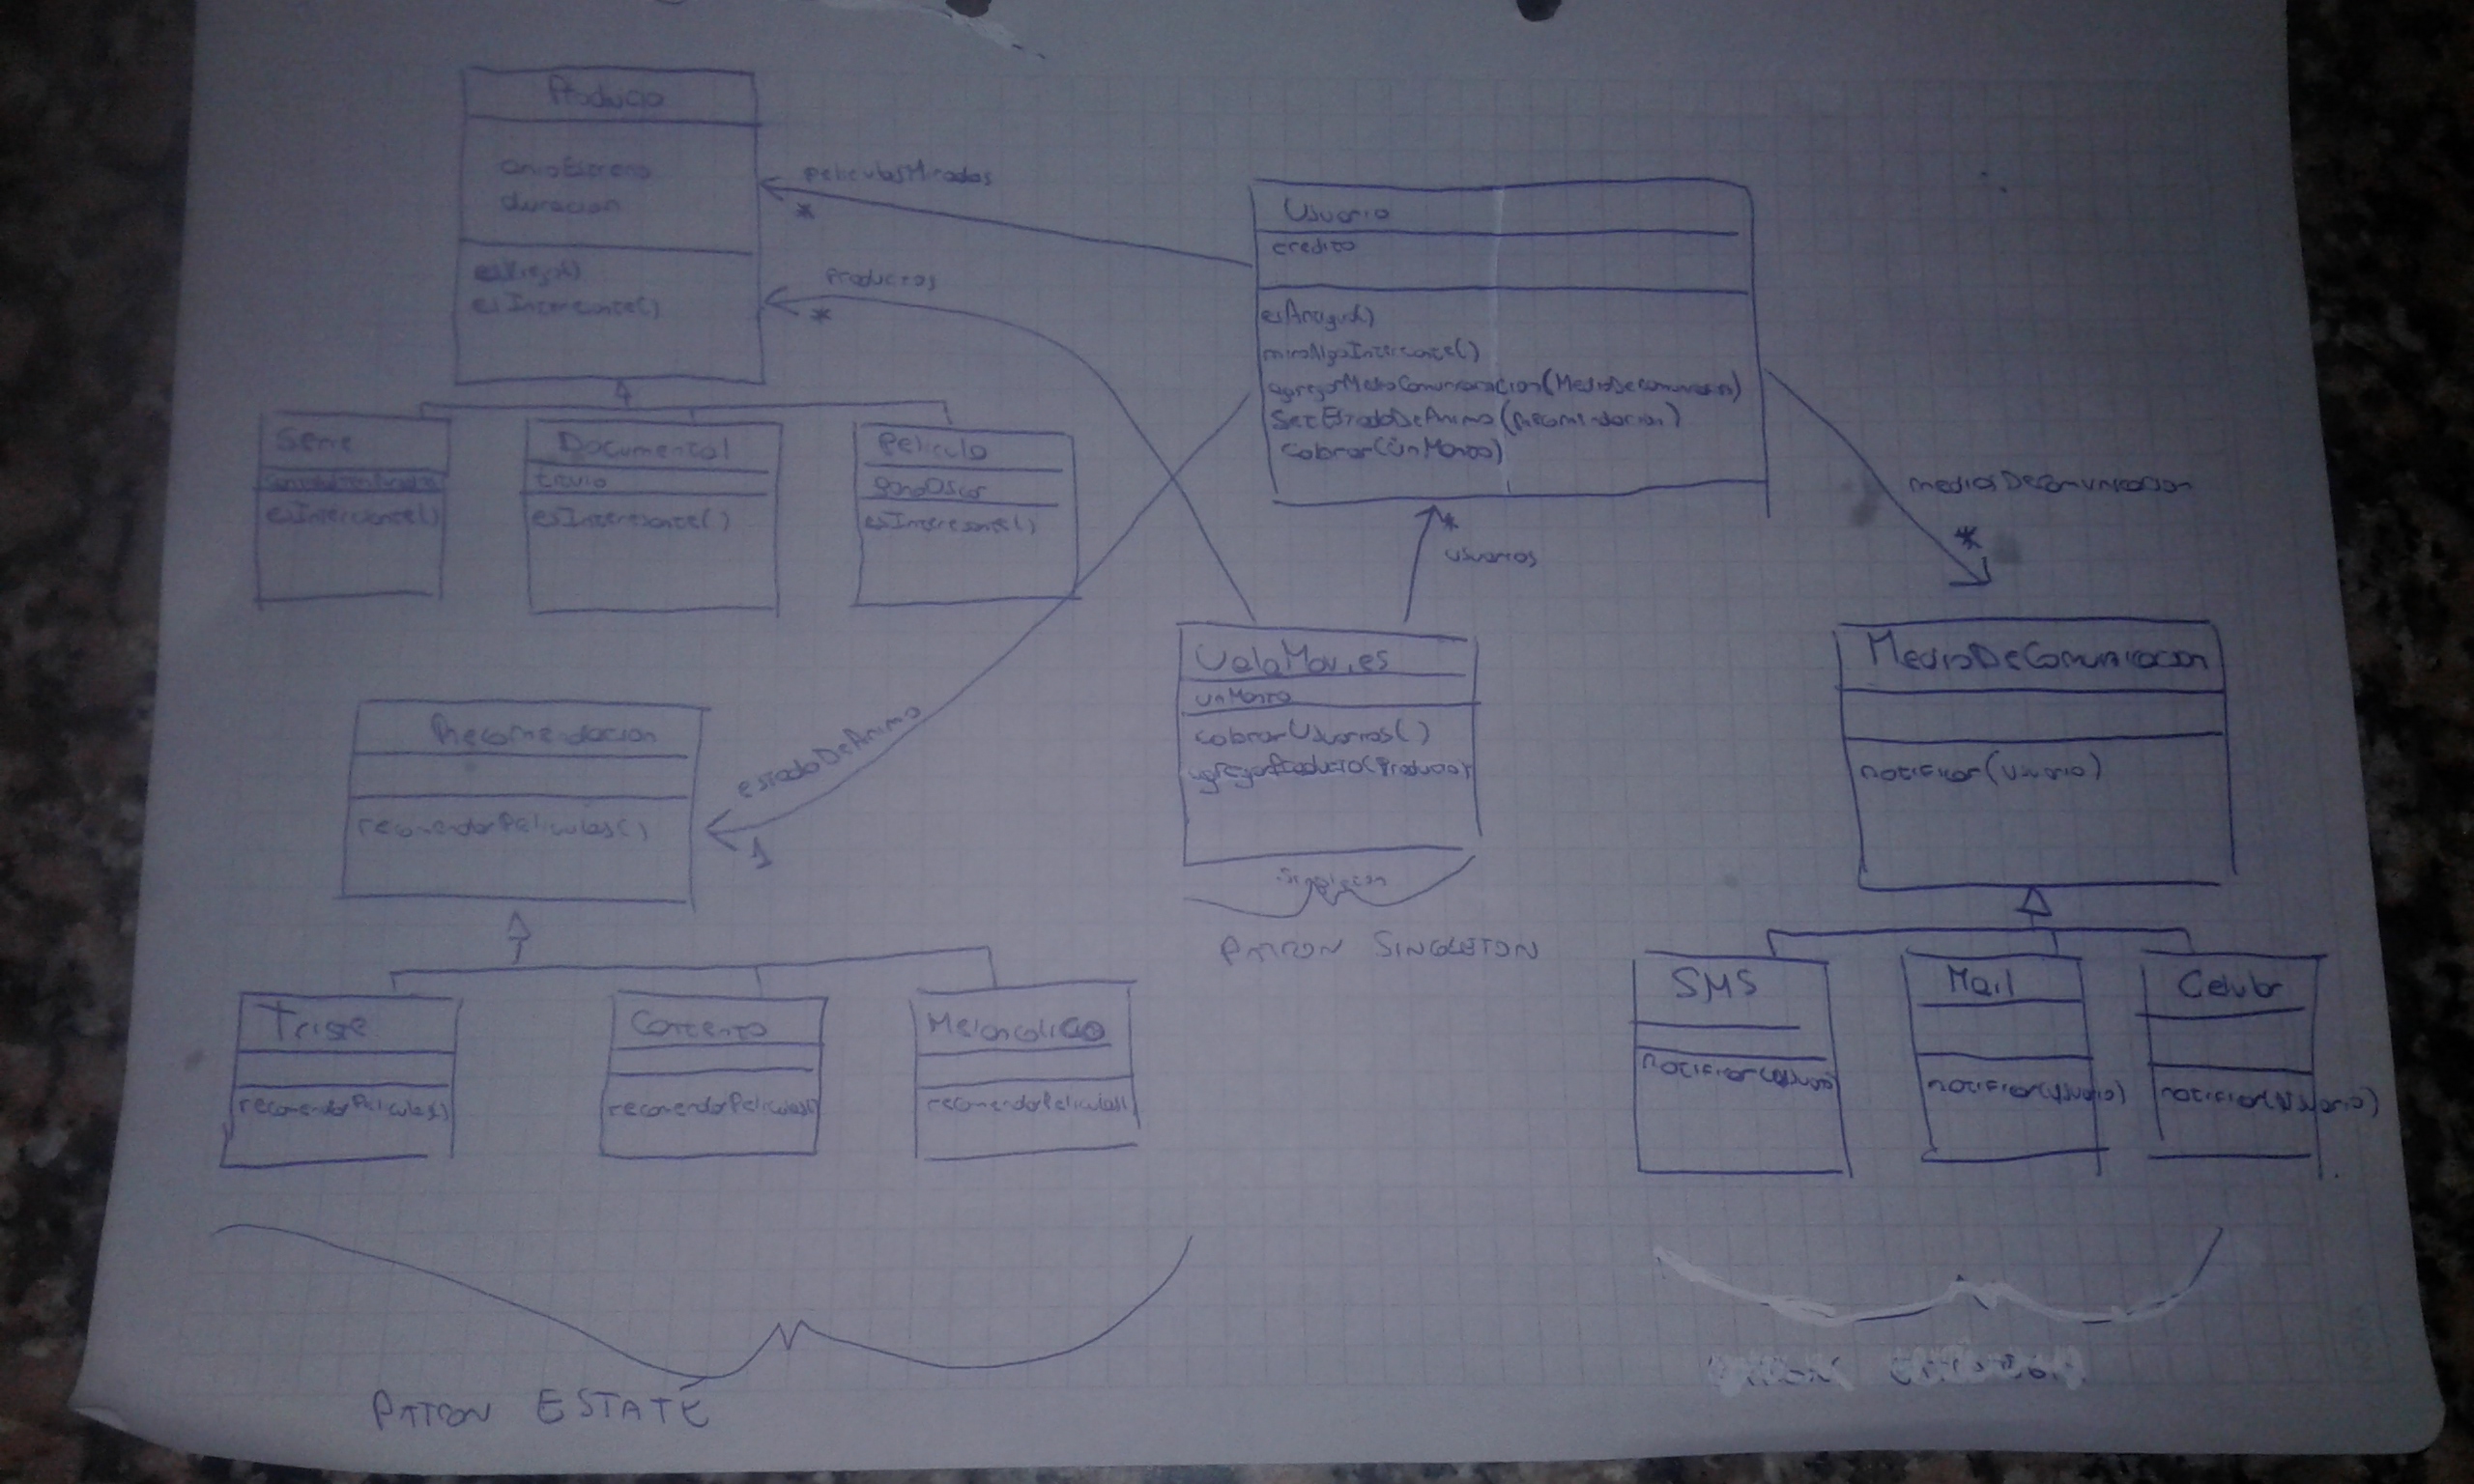 Producto
anioEstreno
duracion
esViejo()
esInteresante()
peliculasMiradas
*
Productos
*
Usuario
credito
esAmigo()
miroAlgoInteresante()
agregarMedioComunicacion(MedioDeComunicacion)
SetEstadoDeAnimo(Recomendacion)
Cobrar(unMonto)
Serie
esInteresante()
Documental
titulo
esInteresante()
Pelicula
ganoOscar
esInteresante()
mediosDeComunicacion
*
*
usuarios
ValaMovies
unMonto
cobrarUsuarios()
agregarProducto(Producto)
Singleton
PATRON SINGLETON
MedioDeComunicacion
notificar(Usuario)
Recomendacion
recomendarPeliculas()
estadoDeAnimo
1
Triste
recomendarPeliculas()
Contento
recomendarPeliculas()
Melancolico
recomendarPeliculas()
SMS
notificar(Usuario)
Mail
notificar(Usuario)
Celular
notificar(Usuario)
PATRON ESTATE